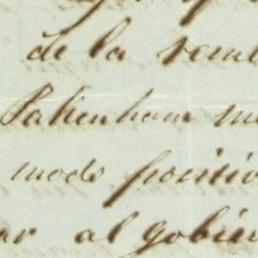 de la
Pakenham
modo positiv
ar al gobier